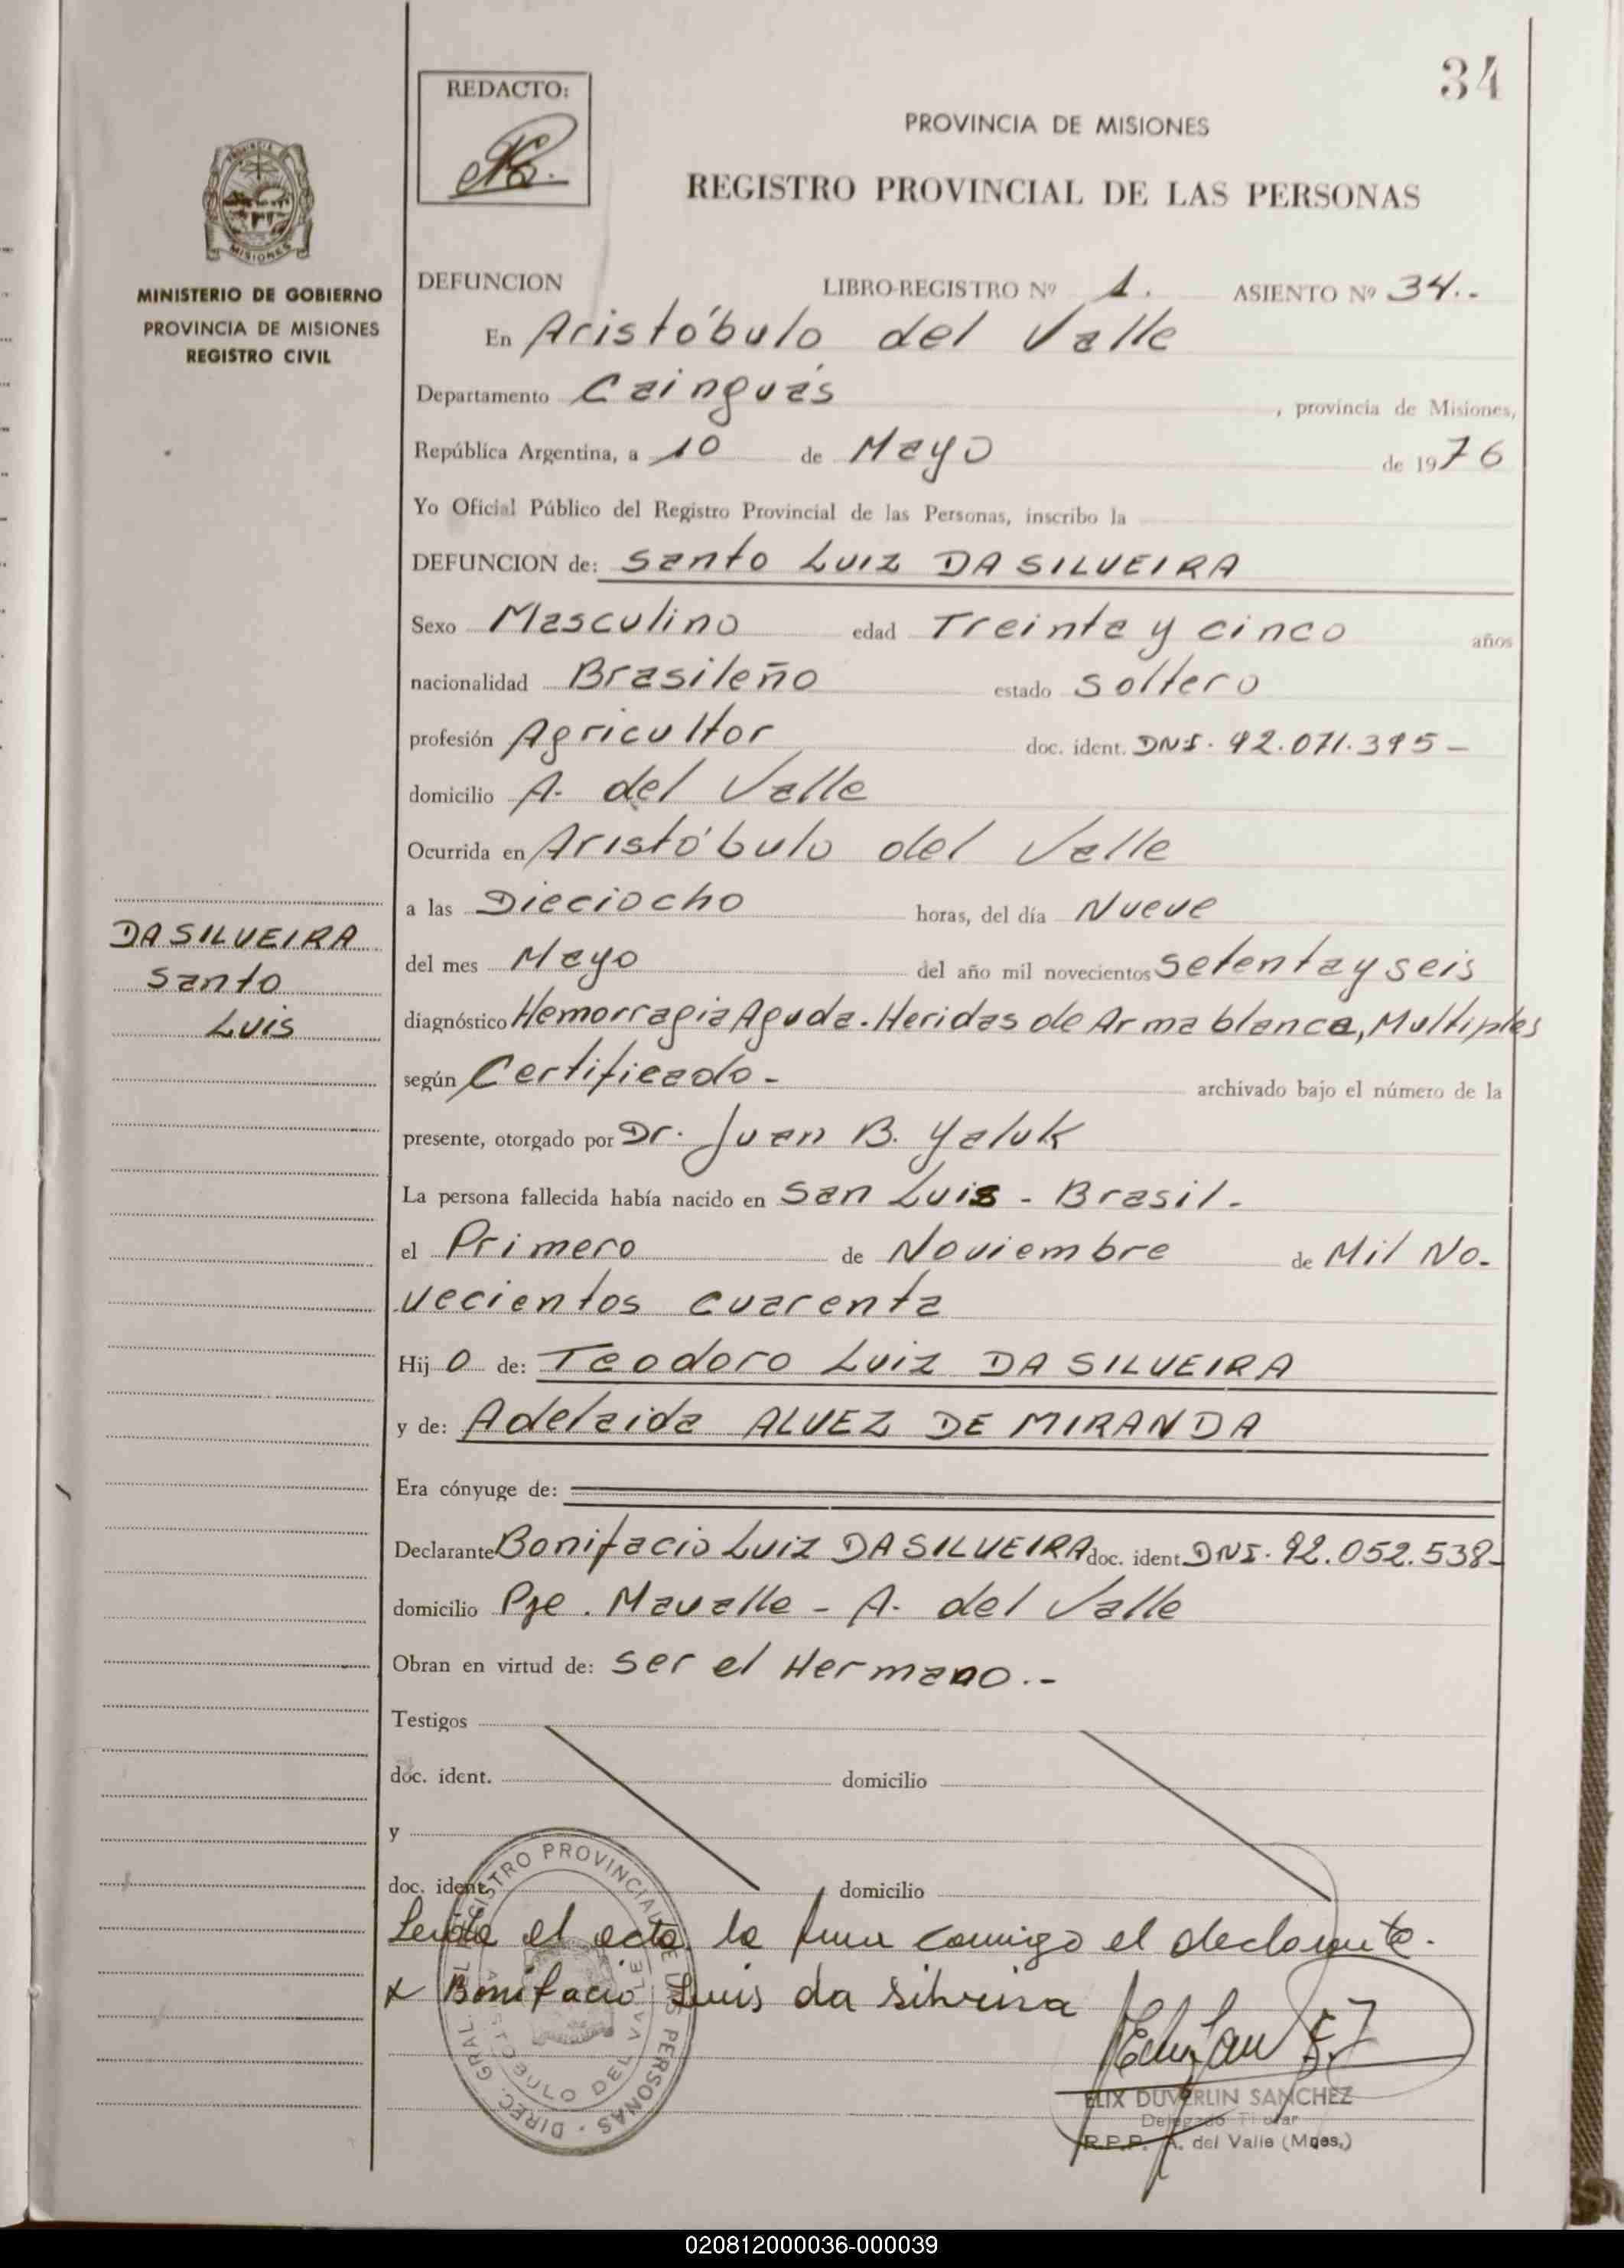 34
REDACTO:
PROVINCIA DE MISIONES
REGISTRO PROVINCIAL DE LAS PERSONAS
MISIONES
MINISTERIO DE GOBIERNO
PROVINCIA DE MISIONES
REGISTRO CIVIL
DEFUNCION LIBRO-REGISTRO Nº 1. ASIENTO Nº 34.-
En Aristóbulo del Valle
Departamento Cainguás, provincia de Misiones,
República Argentina, a 10 de Mayo de 1976
Yo Oficial Público del Registro Provincial de las Personas, inscribo la
DEFUNCION de: Santo Luiz DA SILVEIRA
Sexo Masculino edad Treinta y cinco años
nacionalidad Brasileño estado Soltero
profesión Agricultor doc. ident. DNI. 92.071.395-
domicilio A. del Valle
Ocurrida en Aristóbulo del Valle
a las Dieciocho horas, del día Nueve
del mes Mayo del año mil novecientos setenta y seis
DA SILVEIRA
Santo
Luis
diagnóstico Hemorragia Aguda. Heridas de Arma blanca, Multiples
según Certificado- archivado bajo el número de la
presente, otorgado por Dr. Juan B. Yaluk
La persona fallecida había nacido en San Luis - Brasil.-
el Primero de Noviembre de Mil No-
vecientos cuarenta
Hijo de: Teodoro Luiz DA SILVEIRA
y de: Adelaida ALVEZ DE MIRANDA
Era cónyuge de:
Declarante Bonifacio Luiz DA SILVEIRA doc. ident DNI. 92.052.538-
domicilio Pje. Mavalle - A. del Valle
Obran en virtud de: ser el Hermano.-
Testigos
doc. ident. domicilio
y
doc. ident. domicilio
Leida el acta, la firma comigo el declarante.
x Bonifacio Luis da Silveira
REGISTRO PROVINCIAL DE LAS PERSONAS - DIREC. GRAL. DEL
ARISTOBULO DEL VALLE
ELIX DUVERLIN SANCHEZ
Delegado Titular
R.P.P. A. del Valle (Mnes.)
020812000036-000039